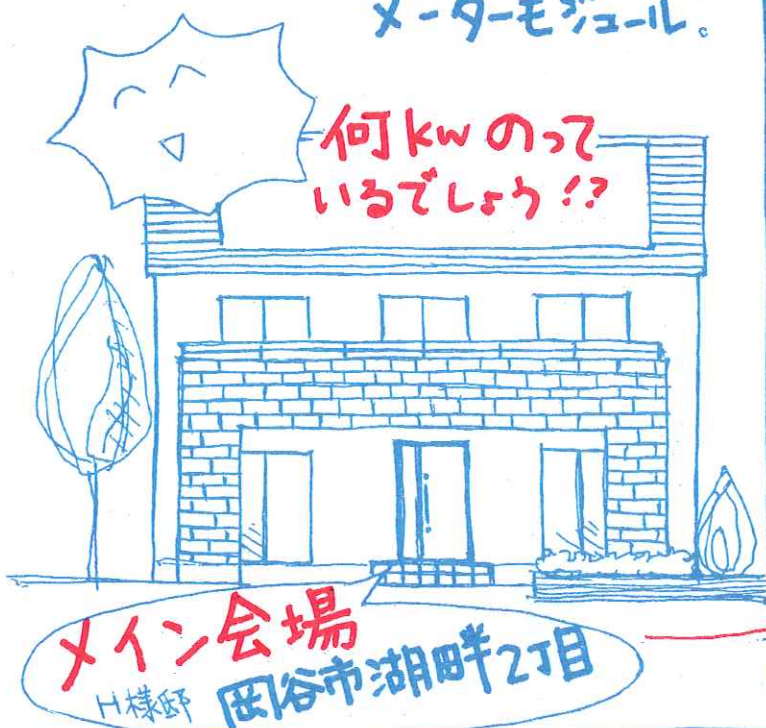 メーターモジュール。
何kwのって
いるでしょう!?
メイン会場
H様邸 岡谷市湖畔2丁目